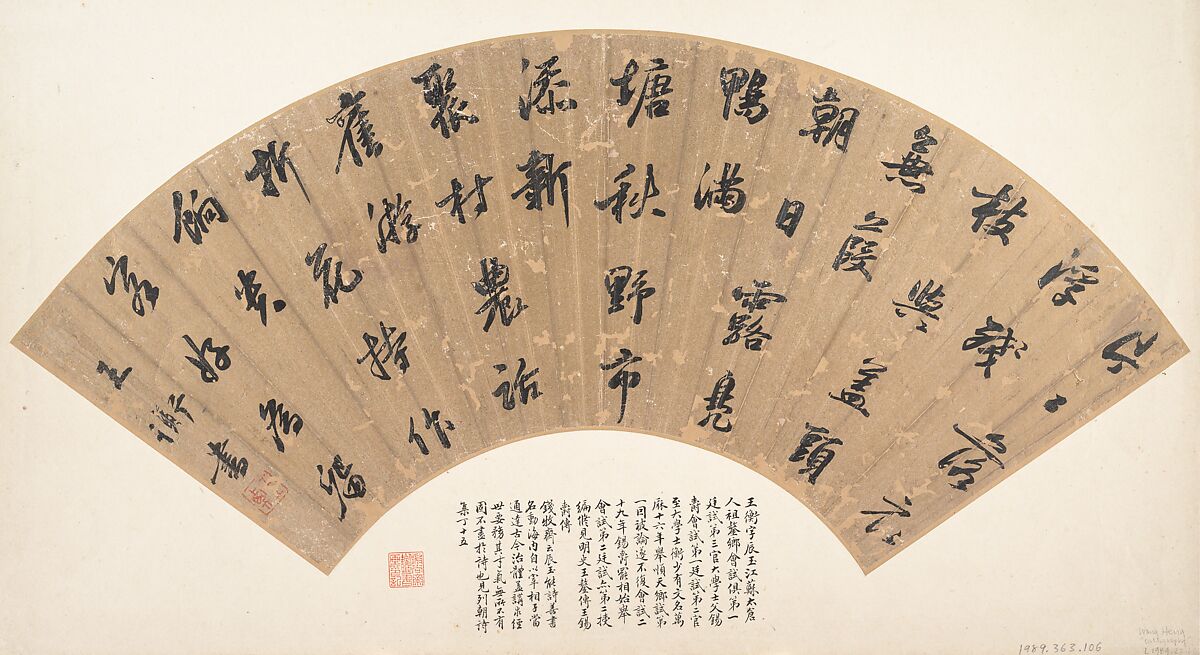 落花
浮殘
枝與蓋頭
蒹葭
朝日露鳧
鴨滿
塘秋野市
添新
聚村農話
舊游
折花持作
餉賓
客好為留
王衡書
王衡字辰玉江蘇太倉
人祖鏊鄉會試俱第一
廷試第三官大學士父錫
爵會試第一廷試第二官
至大學士衡少有文名萬
厤十六年舉順天鄉試第
一因被論遂不復會試二
十九年錫爵罷相始舉
會試第二廷試亦第二授
編修見明史王鏊傳王錫
爵傳
錢牧齋云辰玉能詩善書
名動海内自以宰相子當
通達古今治體益講求經
世要務其才氣無所不有
固不盡於詩也見列朝詩
集丁十五
1989.363.106
Wang Heng